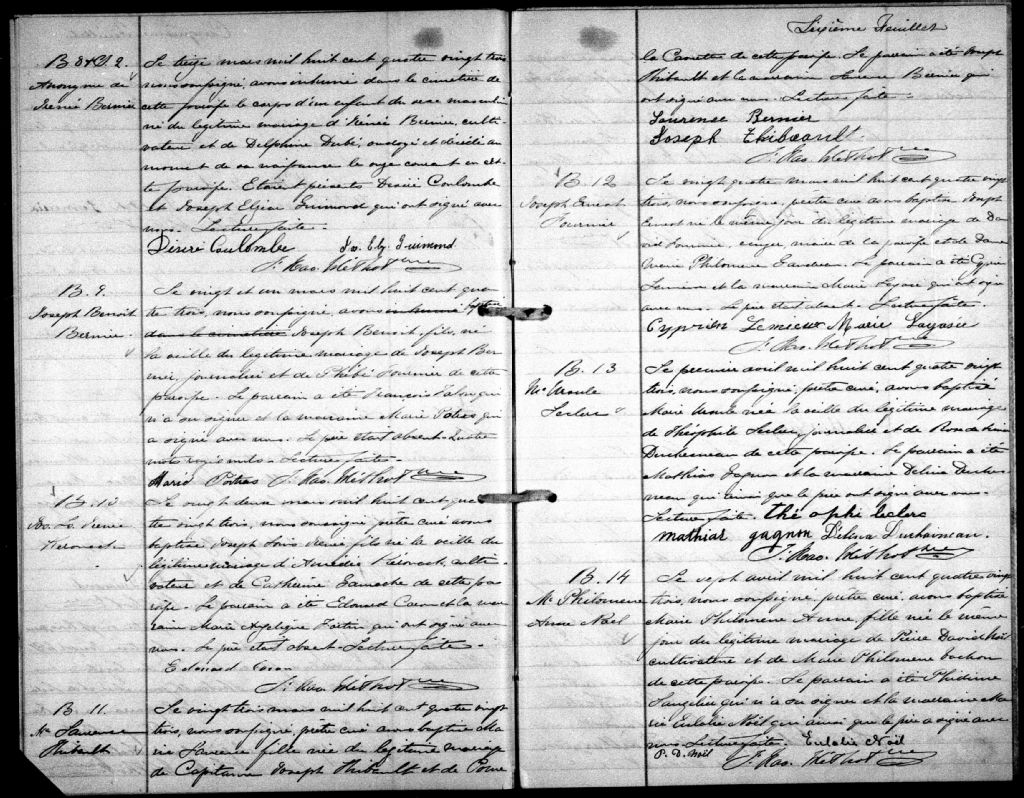 B & S 2.
Anonyme de
Irénée Bernier
Le treize mars mil huit cent quatre vingt trois
nous soussigné, avons inhumé dans le cimetière de
cette paroisse le corps d'un enfant du sexe masculin
né du légitime mariage d'Irénée Bernier, culti-
vateur et de Delphine Dubé, ondoyé et décédé au
moment de sa naissance le onze courant en cet-
te paroisse. Etaient présents Desiré Coulombe
et Joseph Elzéar Guimond qui ont signé avec
nous. Lecture faite.
Disere Coulombe Jos. Elz. Guimond
Ptre
B. 9.
Joseph Benoit
Bernier
Le vingt et un mars mil huit cent qua-
tre trois, nous soussigné, avons inhumé baptisé
dans le cimetière Joseph Benoit, fils, né
la veille du légitime mariage de Joseph Ber-
nier, journalier et de Phébé Fournier de cette
paroisse. Le parrain a été François qui
n'a su signer et la marraine Marie Potras qui
a signé avec nous. Le père était absent. Quatre
mots rayés nuls. Lecture faite.
Marie Potras Ptre
B. 10
Jos. Ls. Pierre
Kérouack
Le vingt deux mars mil huit cent qua-
tre vingt trois, nous soussigné prêtre curé avons
baptisé Joseph Louis Pierre fils né la veille du
légitime mariage d'Amédée Kérouack, culti-
vateur et de Catherine Gamache de cette pa-
roisse. Le parrain a été Edouard Caron et la mar-
raine Marie Fortin qui ont signé avec
nous. Le père était absent. Lecture faite.
Edouard Caron
Ptre
B 11.
M. Laurence
Thibault
Le vingt trois mars mil huit cent quatre vingt
trois, nous soussigné, prêtre curé avons baptisé Ma-
rie Laurence fille née du légitime mariage
de Capitaine Joseph Thibault et de
Sixième Feuillet
de cette paroisse. Le parrain a été Joseph
Thibault et la marraine Laurence Bernier qui
ont signé avec nous. Lecture faite.
Laurence Bernier
Joseph Thibeault
Ptre
B. 12
Joseph Ernest
Fournier
Le vingt quatre mars mil huit cent quatre vingt
trois, nous soussigné, prêtre curé avons baptisé Joseph
Ernest né le même jour du légitime mariage de Da-
Fournier, maire de la paroisse et de Dame
Marie Philomène Gaudreau. Le parrain a été Cyprien
Lemieux et la marraine Marie qui ont signé
avec nous. Le père était absent. Lecture faite.
Cyprien Lemieux Marie Lagasse
Ptre
B. 13
Me. Ursule
Leclerc
Le premier avril mil huit cent quatre vingt
trois, nous soussigné, prêtre curé, avons baptisé
Marie Ursule née la veille du légitime mariage
de Théophile Leclerc journalier et de
Duchesneau de cette paroisse. Le parrain a été
Mathias Gagnon et la marraine Delina Duches-
neau qui ainsi que le père ont signé avec nous.
Lecture faite. théophi leclerc
mathiar gagnon Délina Duchaineau.
Ptre
B. 14
Me. Philomene
Anne Noël
Le sept avril mil huit cent quatre vingt
trois, nous soussigné, prêtre curé, avons baptisé
Marie Philomene Anne, fille née le même
jour du légitime mariage de Pierre David Noël
cultivateur et de Marie Philomene
de cette paroisse. Le parrain a été Phidime
qui n'a su signer et la marraine Ma-
rie Eulalie Noël qui ainsi que le père a signé avec
nous. Lecture faite. Eulalie Noël
P. D. Noël Ptre